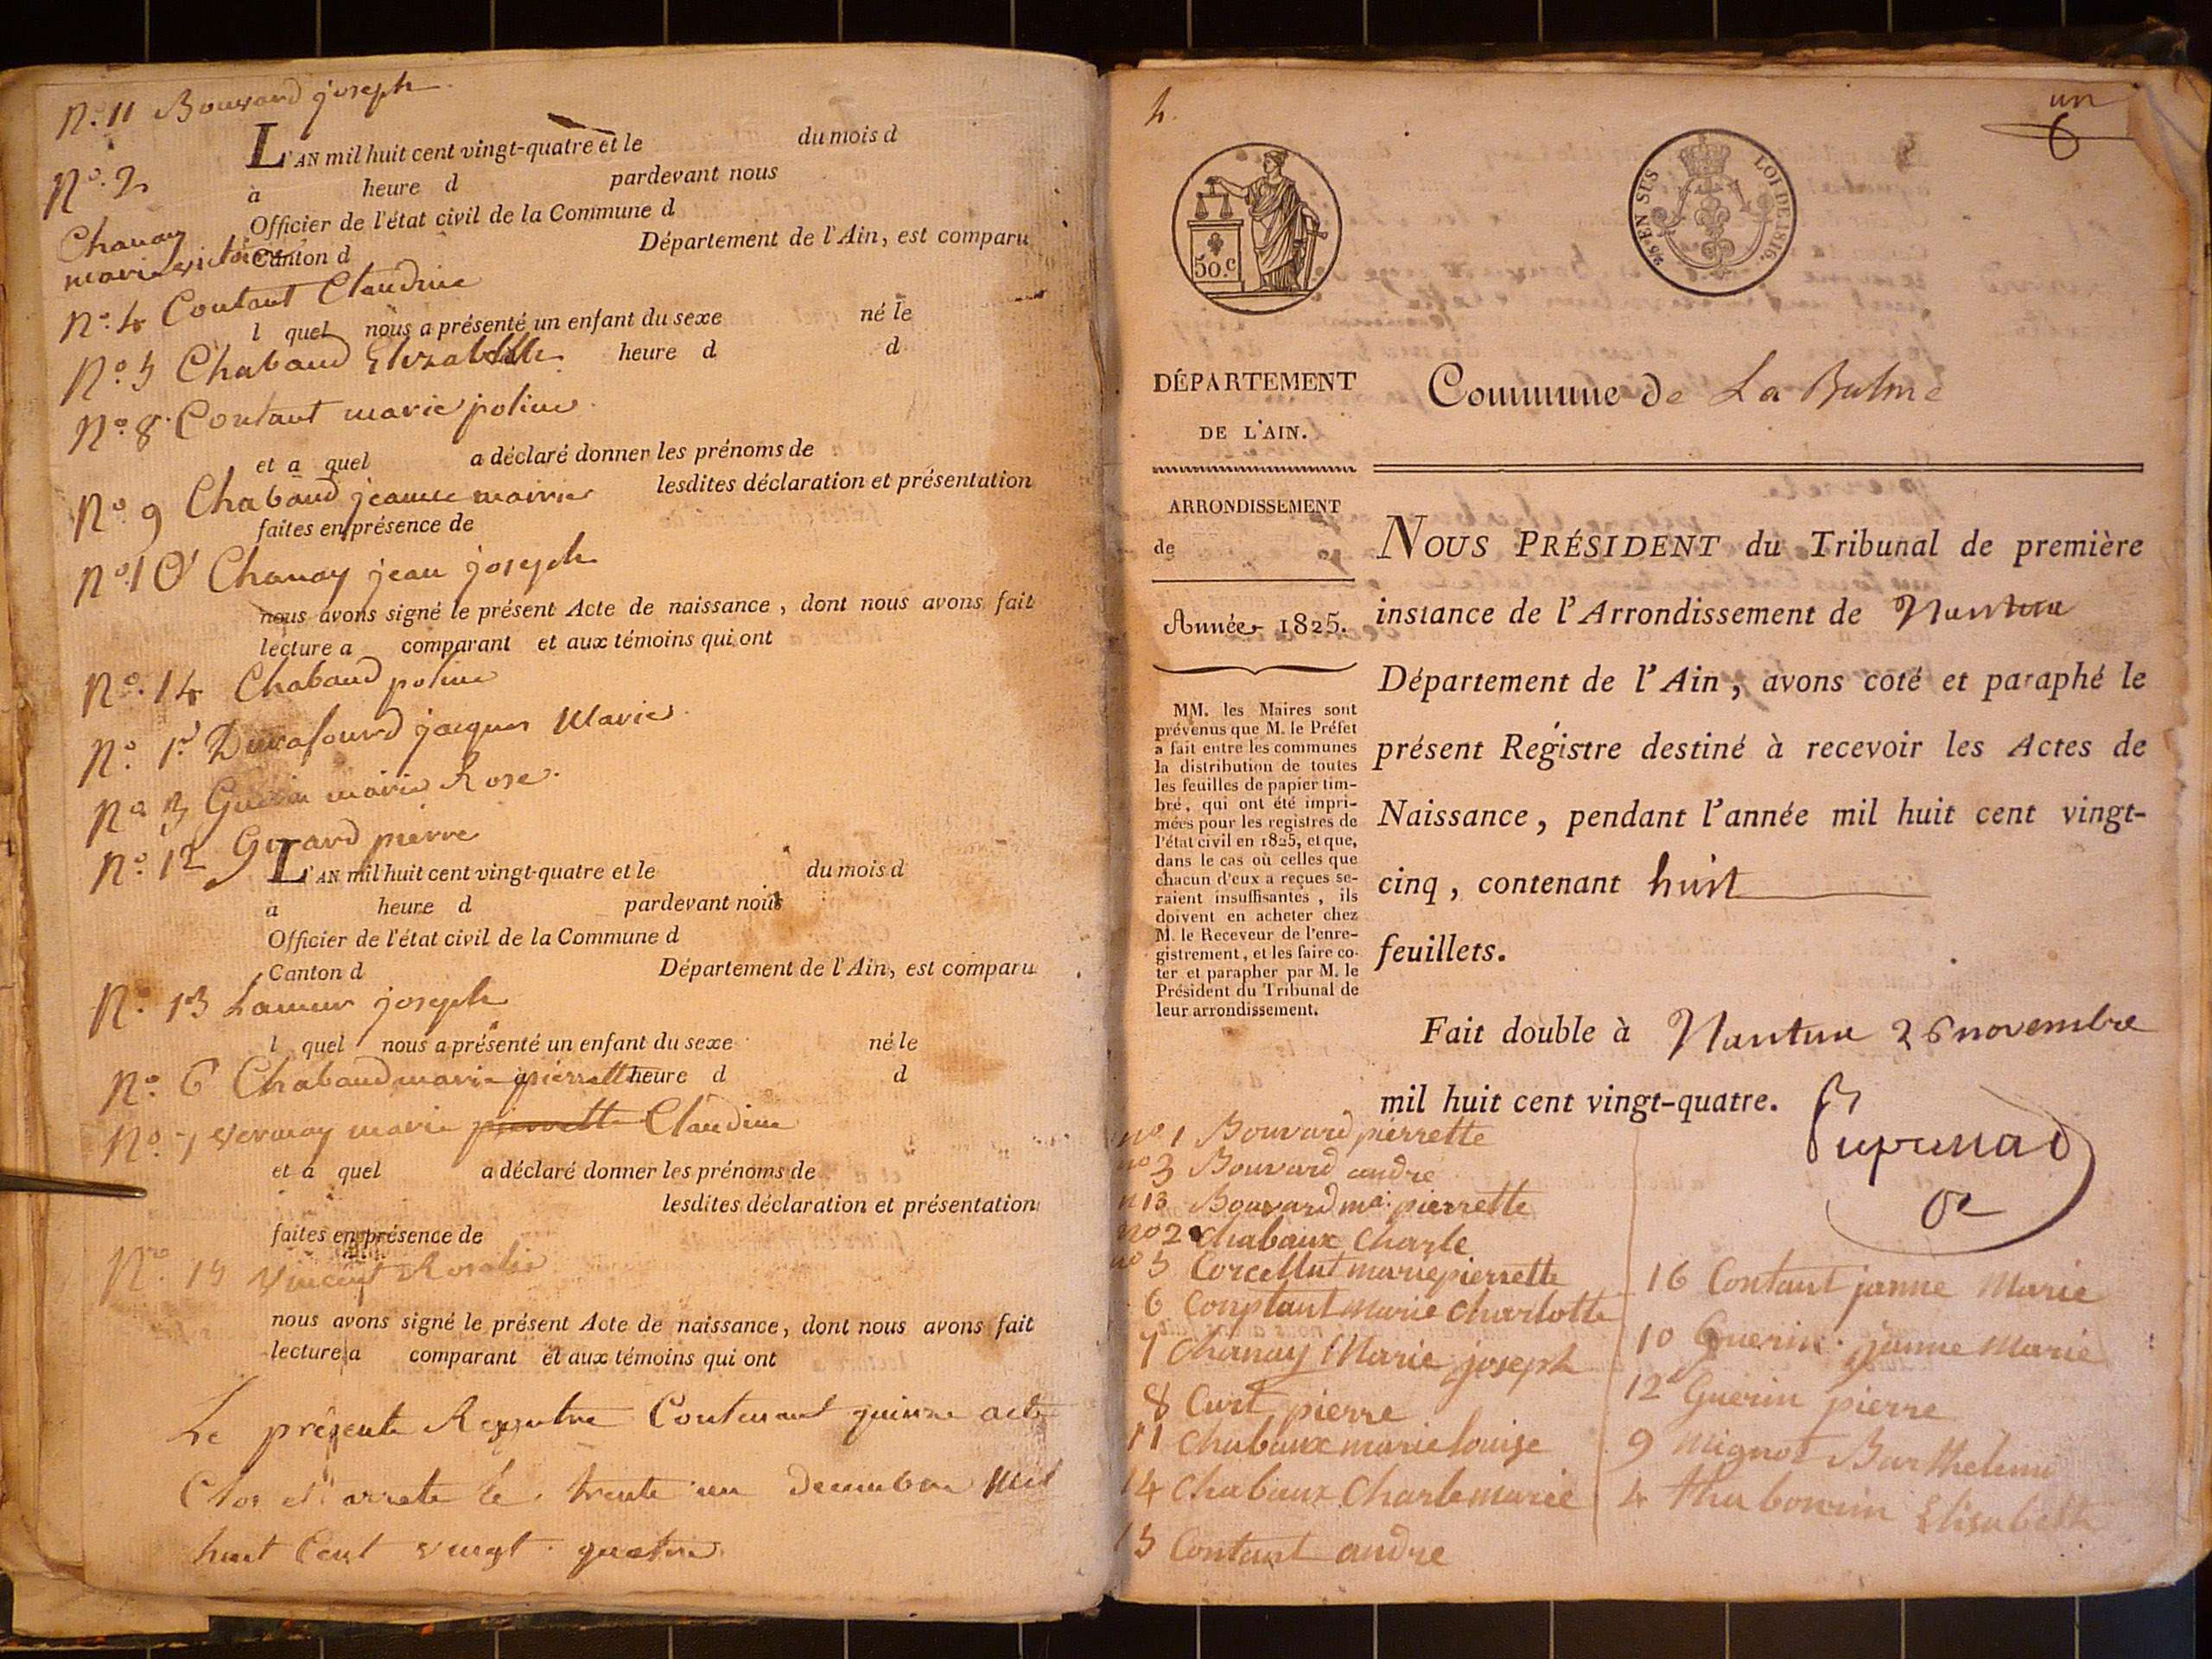 N.o 11 Bouvard joseph
L'AN mil huit cent vingt-quatre et le du mois d
N.o 2
à heure d pardevant nous
Officier de l'état civil de la Commune d
Chanay
Département de l'Ain, est comparu
marie victoire Canton d
N.o 4 Contant Claudine
l quel nous a présenté un enfant du sexe né le
N.o 5 Chabaud Elizabeth heure d d
N.o 8 Contant marie poline
et a quel a déclaré donner les prénoms de
N.o 9 Chabaud jeanne marie lesdites déclaration et présentation
faites en présence de
N.o 10 Chanay jean joseph
nous avons signé le présent Acte de naissance, dont nous avons fait
lecture a comparant et aux témoins qui ont
N.o 14 Chabaud poline
N.o 1 jacques Marie
N.o 3 marie Rose
N.o 12 Girard pierre
L'AN mil huit cent vingt-quatre et le du mois d
a heure d pardevant nous
Officier de l'état civil de la Commune d
Canton d Département de l'Ain, est comparu
N.o 13 joseph
l quel nous a présenté un enfant du sexe né le
N.o 6 Chabaud marie pierrette heure d d
N.o 7 marie pierrette Claudine
et a quel a déclaré donner les prénoms de
lesdites déclaration et présentation
faites en présence de
N.o 15 Vincent Rosalie
nous avons signé le présent Acte de naissance, dont nous avons fait
lecture a comparant et aux témoins qui ont
Le présente Contenant quinze acte
Clos et arrete le trente un Decembre Mil
huit Cent vingt quatre
un
6
50.c
25.e EN SUS
LOI DE 1816.
DÉPARTEMENT
DE L'AIN.
Commune de La Balme
ARRONDISSEMENT
de
Année 1825.
MM. les Maires sont
prévenus que M. le Préfet
a fait entre les communes
la distribution de toutes
les feuilles de papier tim-
bré, qui ont été impri-
mées pour les registres de
l'état civil en 1825, et que,
dans le cas où celles que
chacun d'eux a reçues se-
raient insuffisantes, ils
doivent en acheter chez
M. le Receveur de l'enre-
gistrement, et les faire co-
ter et parapher par M. le
Président du Tribunal de
leur arrondissement.
NOUS PRÉSIDENT du Tribunal de première
instance de l'Arrondissement de Nantua
Département de l'Ain, avons coté et paraphé le
présent Registre destiné à recevoir les Actes de
Naissance, pendant l'année mil huit cent vingt-
cinq, contenant huit
feuillets.
Fait double à Nantua 26 novembre
mil huit cent vingt-quatre.
no 1 Bouvard pierrette
no 3 Bouvard andre
n 13 Bouvard ma. pierrette
no 2 Chabaux Charle
no 5 Corcellut marie pierrette
6 Conptant Marie Charlotte
7 Chanay Marie joseph
8 Curt pierre
11 Chabaux marie louise
14 Chabaux Charle marie
15 Contant andre
16 Contant janne Marie
10 Guerin janne Marie
12 Guerin pierre
9 Mignot Barthelemi
4 Elisabeth